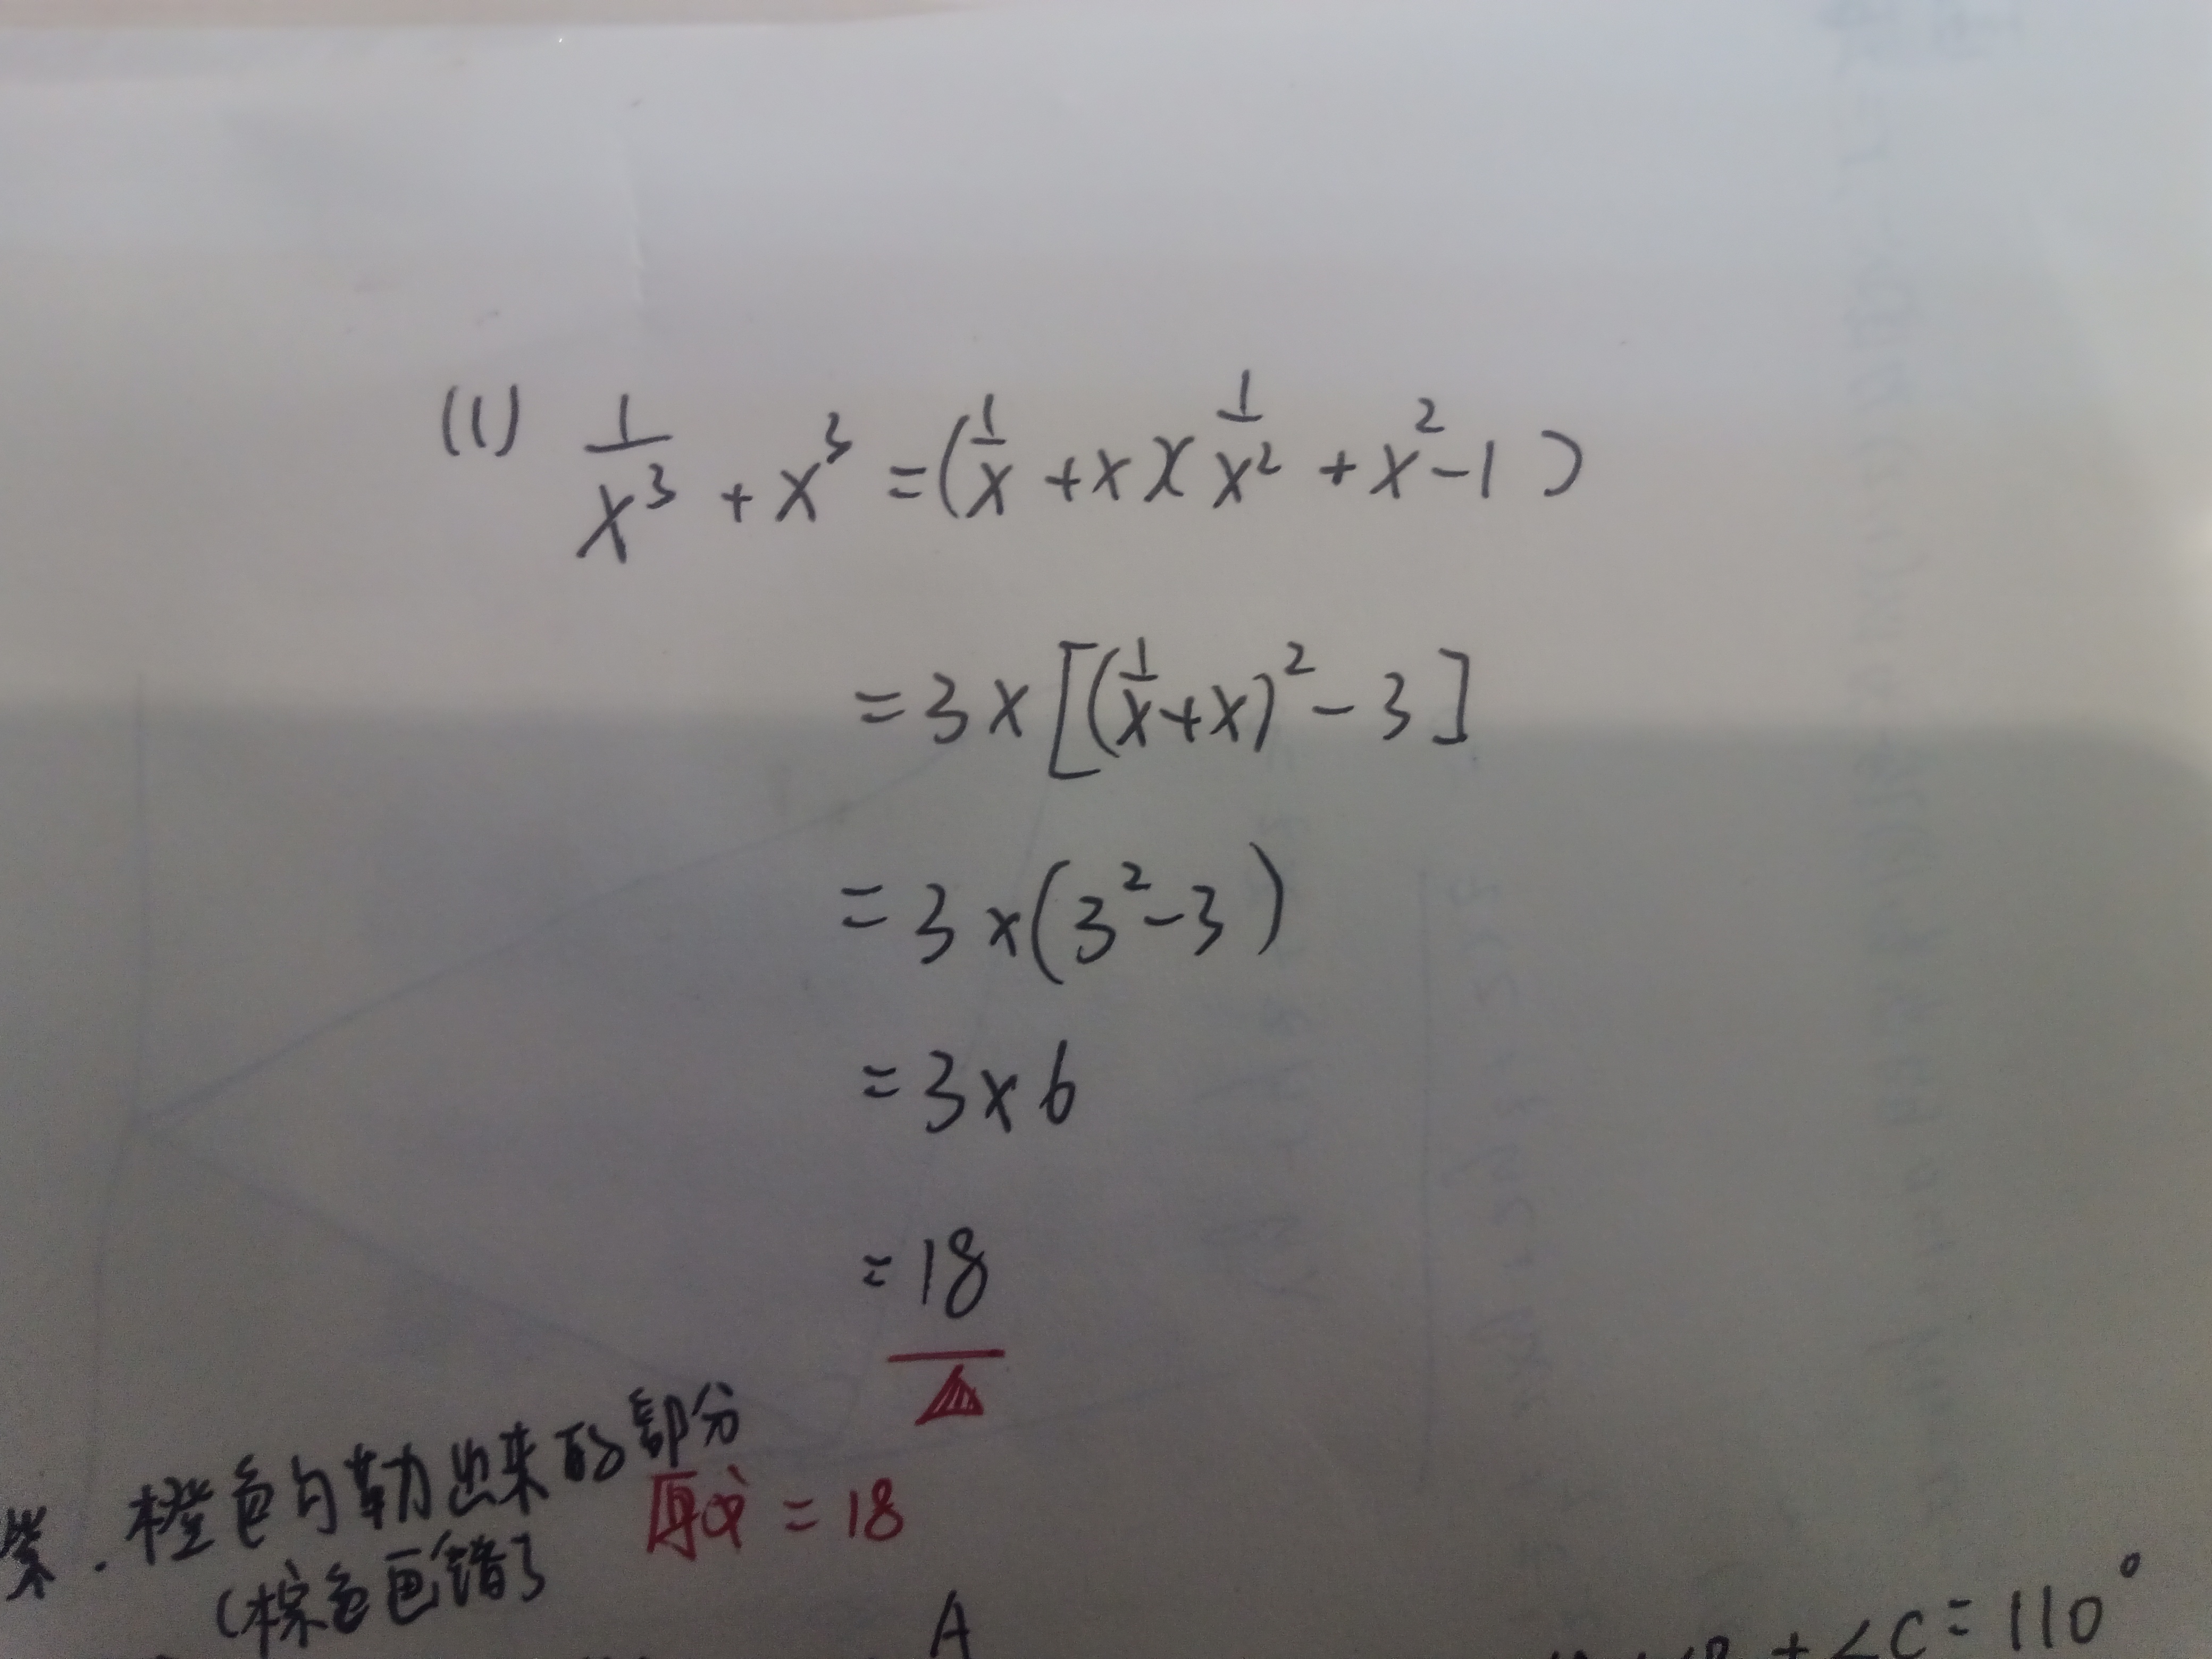 (1) 1/x³ + x³ = (1/x + x)(1/x² + x² - 1)
= 3 × [(1/x + x)² - 3]
= 3 × (3² - 3)
= 3 × 6
= 18
橙色勾勒出来的部分
原式 = 18
(棕色画错了
A
+ ∠C = 110°